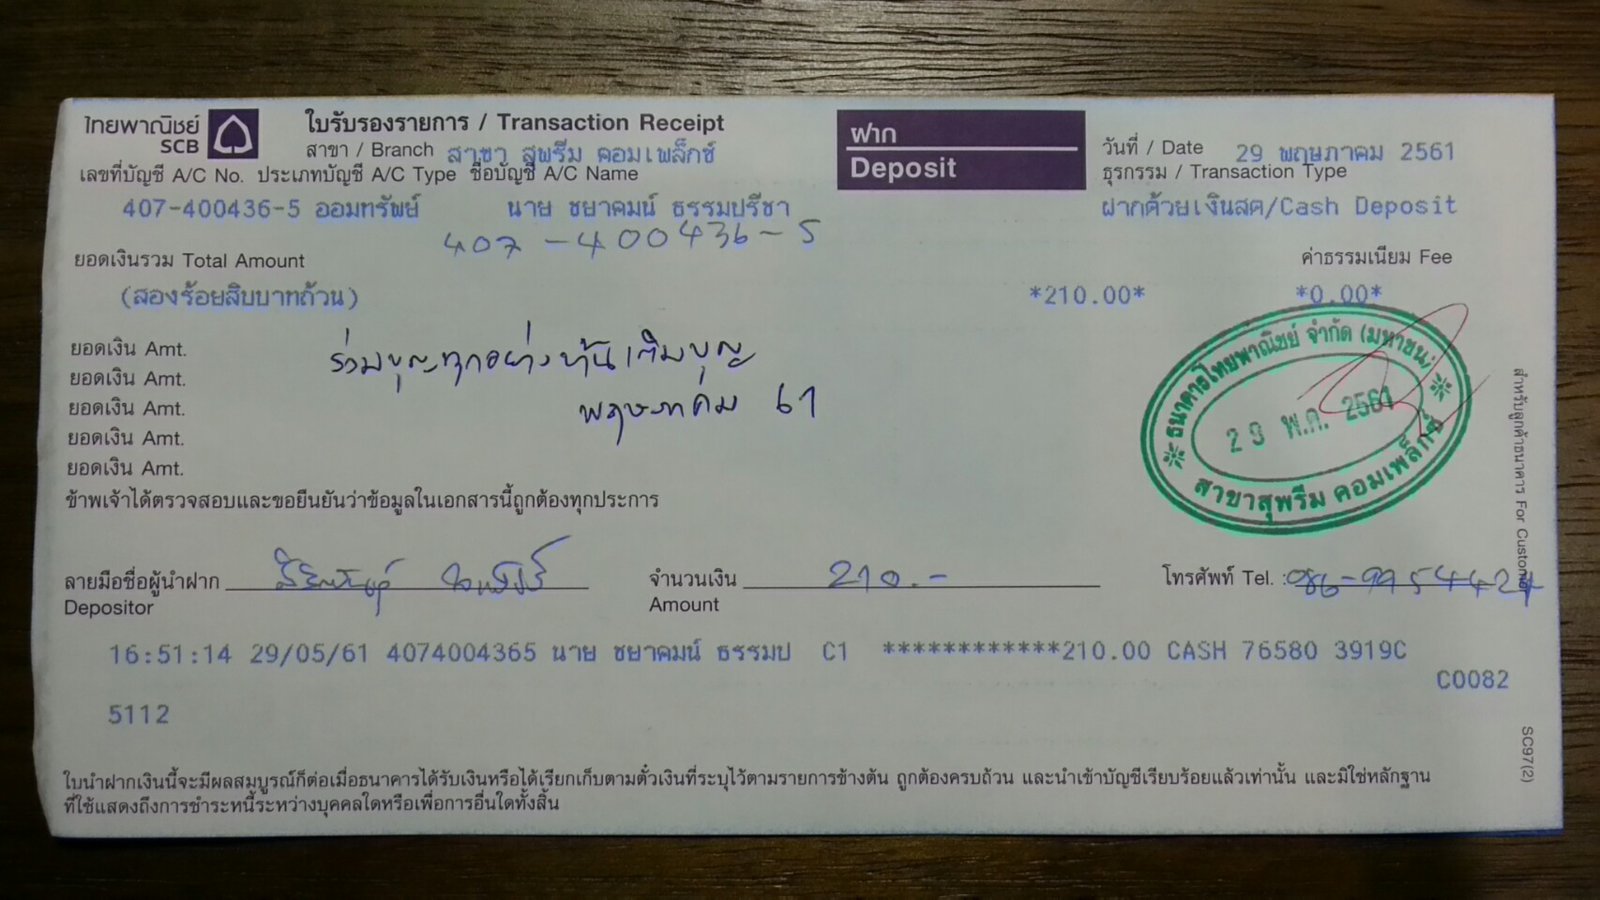 ไทยพาณิชย์
SCB
ใบรับรองรายการ / Transaction Receipt
สาขา / Branch สาขา สุพรีม คอมเพล็กซ์
ฝาก
Deposit
วันที่ / Date 29 พฤษภาคม 2561
เลขที่บัญชี A/C No. ประเภทบัญชี A/C Type ชื่อบัญชี A/C Name
ธุรกรรม / Transaction Type
407-400436-5 ออมทรัพย์ นาย ชยาคมน์ ธรรมปรีชา
ฝากด้วยเงินสด/Cash Deposit
407-400436-5
ยอดเงินรวม Total Amount
ค่าธรรมเนียม Fee
(สองร้อยสิบบาทถ้วน) *210.00* *0.00*
ยอดเงิน Amt.
ยอดเงิน Amt.
ยอดเงิน Amt.
ยอดเงิน Amt.
ยอดเงิน Amt.
ร่วมบุญทุกอย่าง เติมบุญ
พฤษภาคม 61
ธนาคารไทยพาณิชย์ จำกัด (มหาชน)
29 พ.ค. 2561
สาขาสุพรีม คอมเพล็กซ์
สำหรับลูกค้าธนาคาร For Customer
ข้าพเจ้าได้ตรวจสอบและขอยืนยันว่าข้อมูลในเอกสารนี้ถูกต้องทุกประการ
ลายมือชื่อผู้นำฝาก
Depositor
จำนวนเงิน 210.-
Amount
โทรศัพท์ Tel. : 086-9954424
16:51:14 29/05/61 4074004365 นาย ชยาคมน์ ธรรมป C1 ************210.00 CASH 76580 3919C
C0082
5112
SC97(2)
ใบนำฝากเงินนี้จะมีผลสมบูรณ์ก็ต่อเมื่อธนาคารได้รับเงินหรือได้เรียกเก็บตามตั๋วเงินที่ระบุไว้ตามรายการข้างต้น ถูกต้องครบถ้วน และนำเข้าบัญชีเรียบร้อยแล้วเท่านั้น และมิใช่หลักฐาน
ที่ใช้แสดงถึงการชำระหนี้ระหว่างบุคคลใดหรือเพื่อการอื่นใดทั้งสิ้น